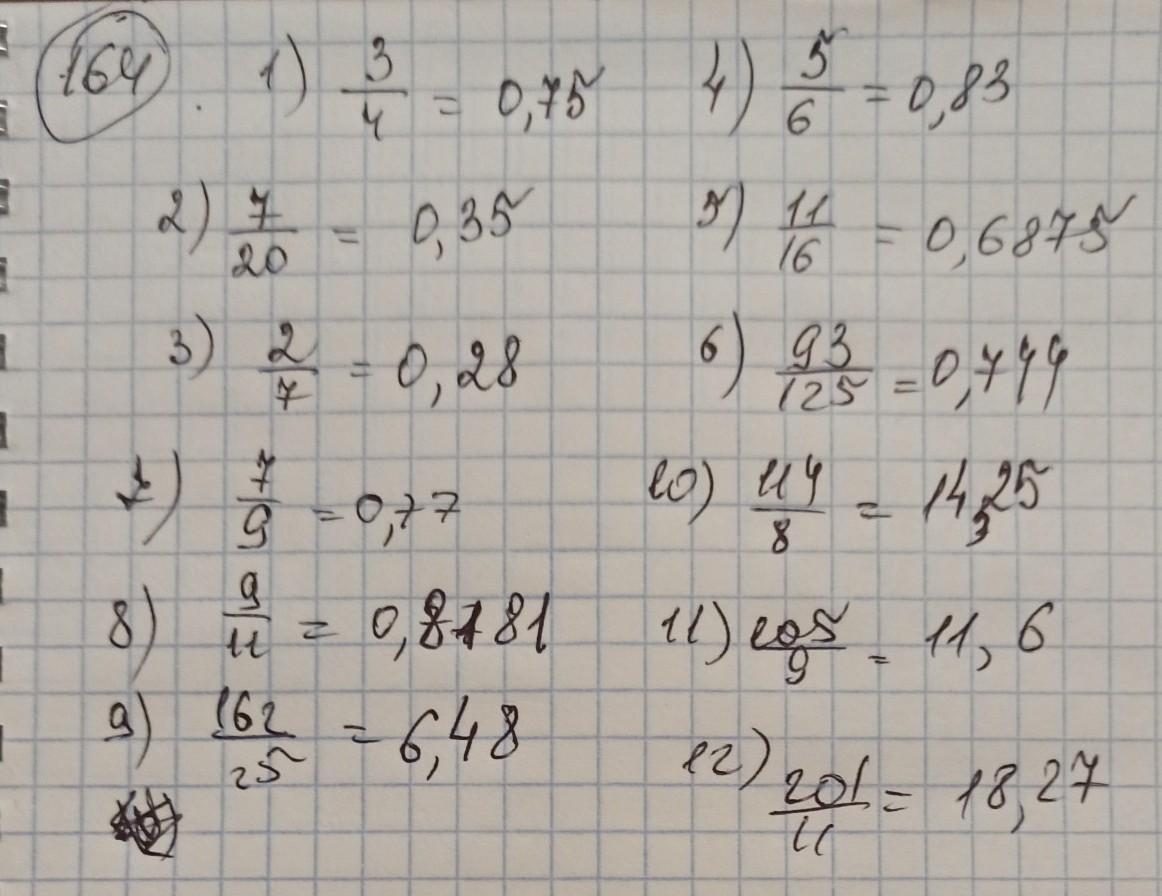 164. 1) 3/4 = 0,75 4) 5/6 = 0,83
2) 7/20 = 0,35 5) 11/16 = 0,6875
3) 2/7 = 0,28 6) 93/125 = 0,744
7) 7/9 = 0,77 10) 114/8 = 14,25
8) 9/11 = 0,8181 11) 105/9 = 11,6
9) 162/25 = 6,48 12) 201/11 = 18,27